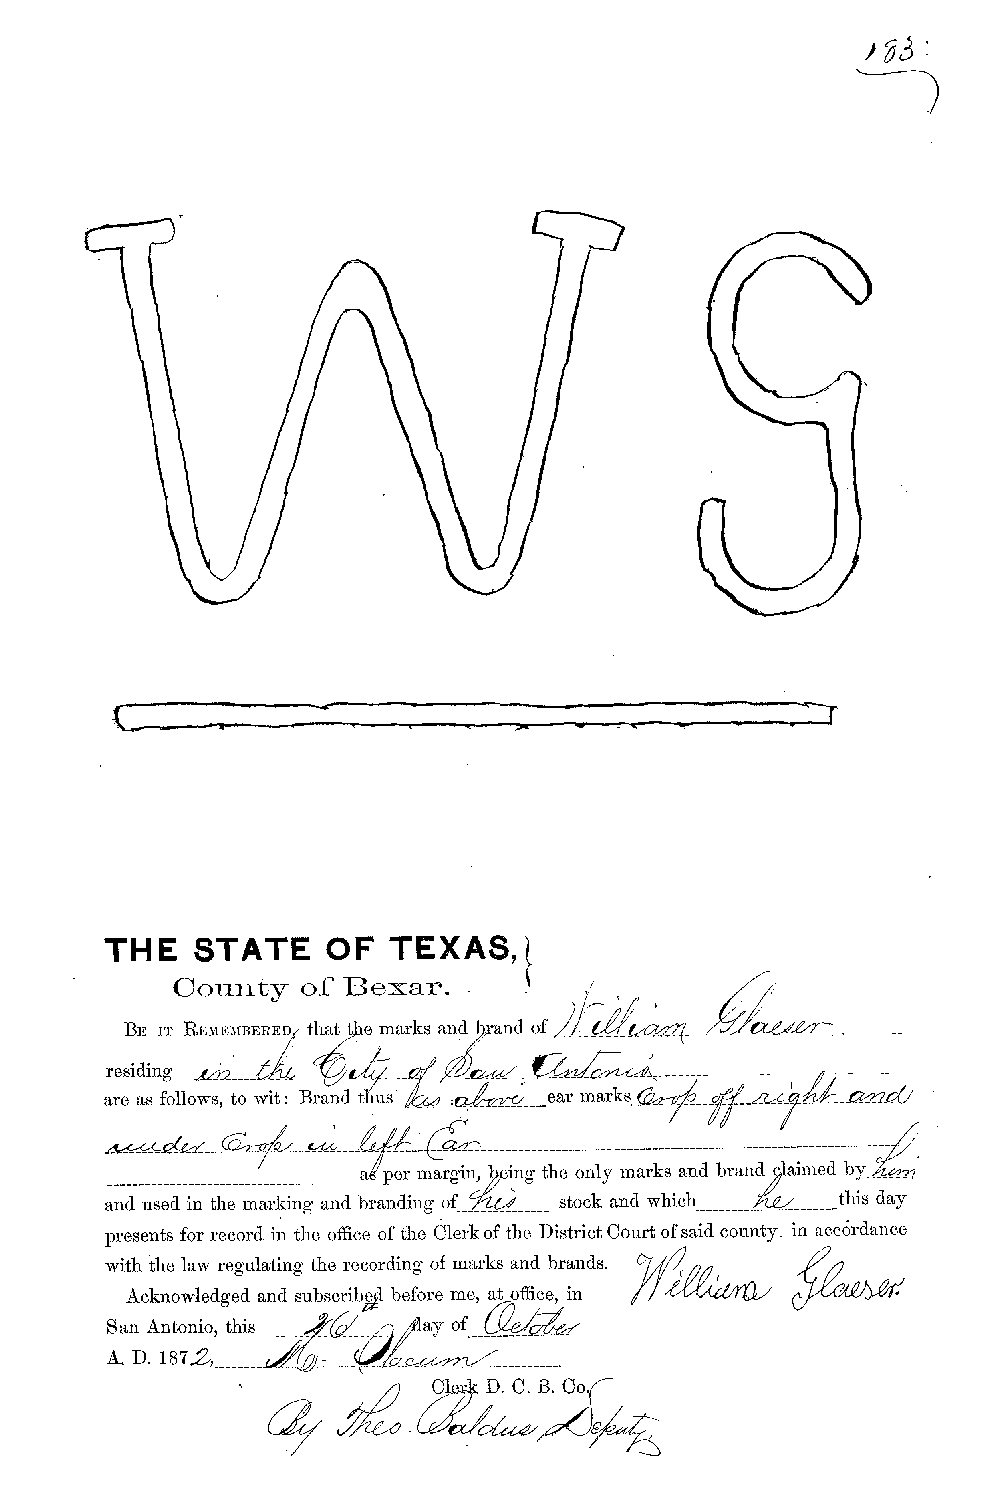 183
W G
THE STATE OF TEXAS,
County of Bexar.
BE IT REMEMBERED, that the marks and brand of William Glaeser
residing in the City of San Antonio
are as follows, to wit: Brand thus as above ear marks Crop off right and
under Crop in left Ear
as per margin, being the only marks and brand claimed by him
and used in the marking and branding of his stock and which he this day
presents for record in the office of the Clerk of the District Court of said county, in accordance
with the law regulating the recording of marks and brands.
William Glaeser
Acknowledged and subscribed before me, at office, in
San Antonio, this day of October
A. D. 1872, Slocum
Clerk D. C. B. Co.
By Theo. Baldus Deputy